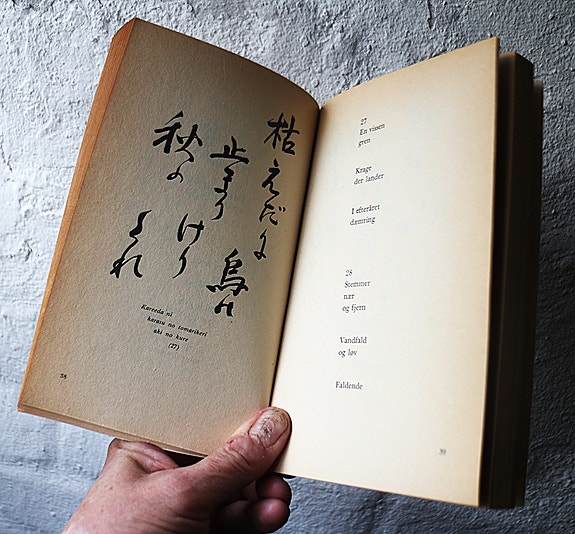 枯えだに
烏の
止まりけり
秋の
くれ
Kareeda ni
karasu no tomarikeri
aki no kure
(27)
58
27
En vissen
gren
Krage
der lander
I efteråret
dæmring
28
Stemmer
nær
og fjern
Vandfald
og løv
Faldende
59